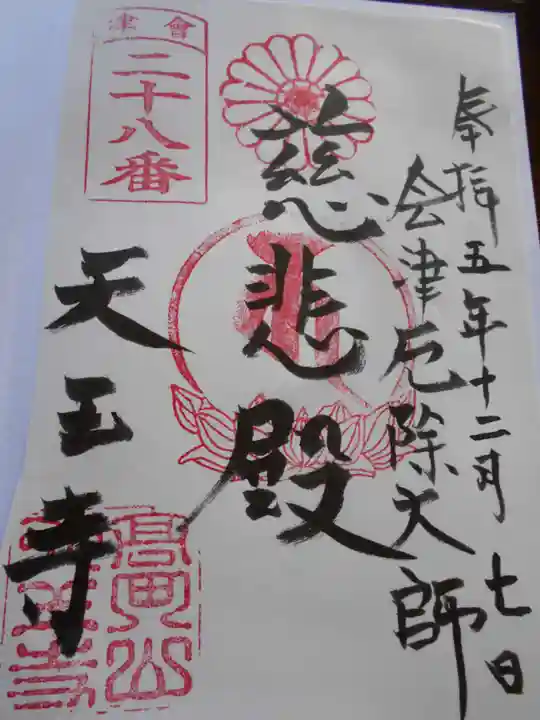 奉拝五年十二月七日
会津厄除大師
慈悲殿
會津
二十八番
天王寺